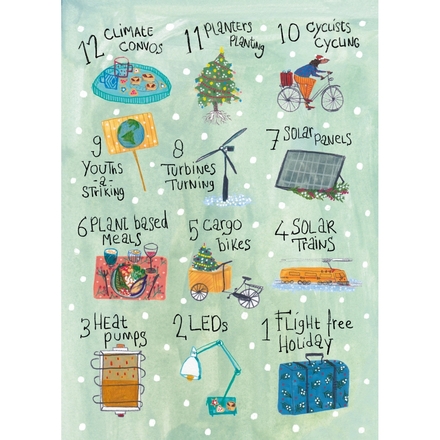 12 CLIMATE
CONVOS
11 PLANTERS
PLANTING
10 CYCLISTS
CYCLING
9
YOUTHS
-a-
STRIKING
8
TURBINES
TURNING
7 SOLAR PANELS
6 PLANT based
MEALS
5 CARGO
bikes
4 SOLAR
TRAINS
3 HEAT
pumps
2 LEDs
1 Flight free
Holiday